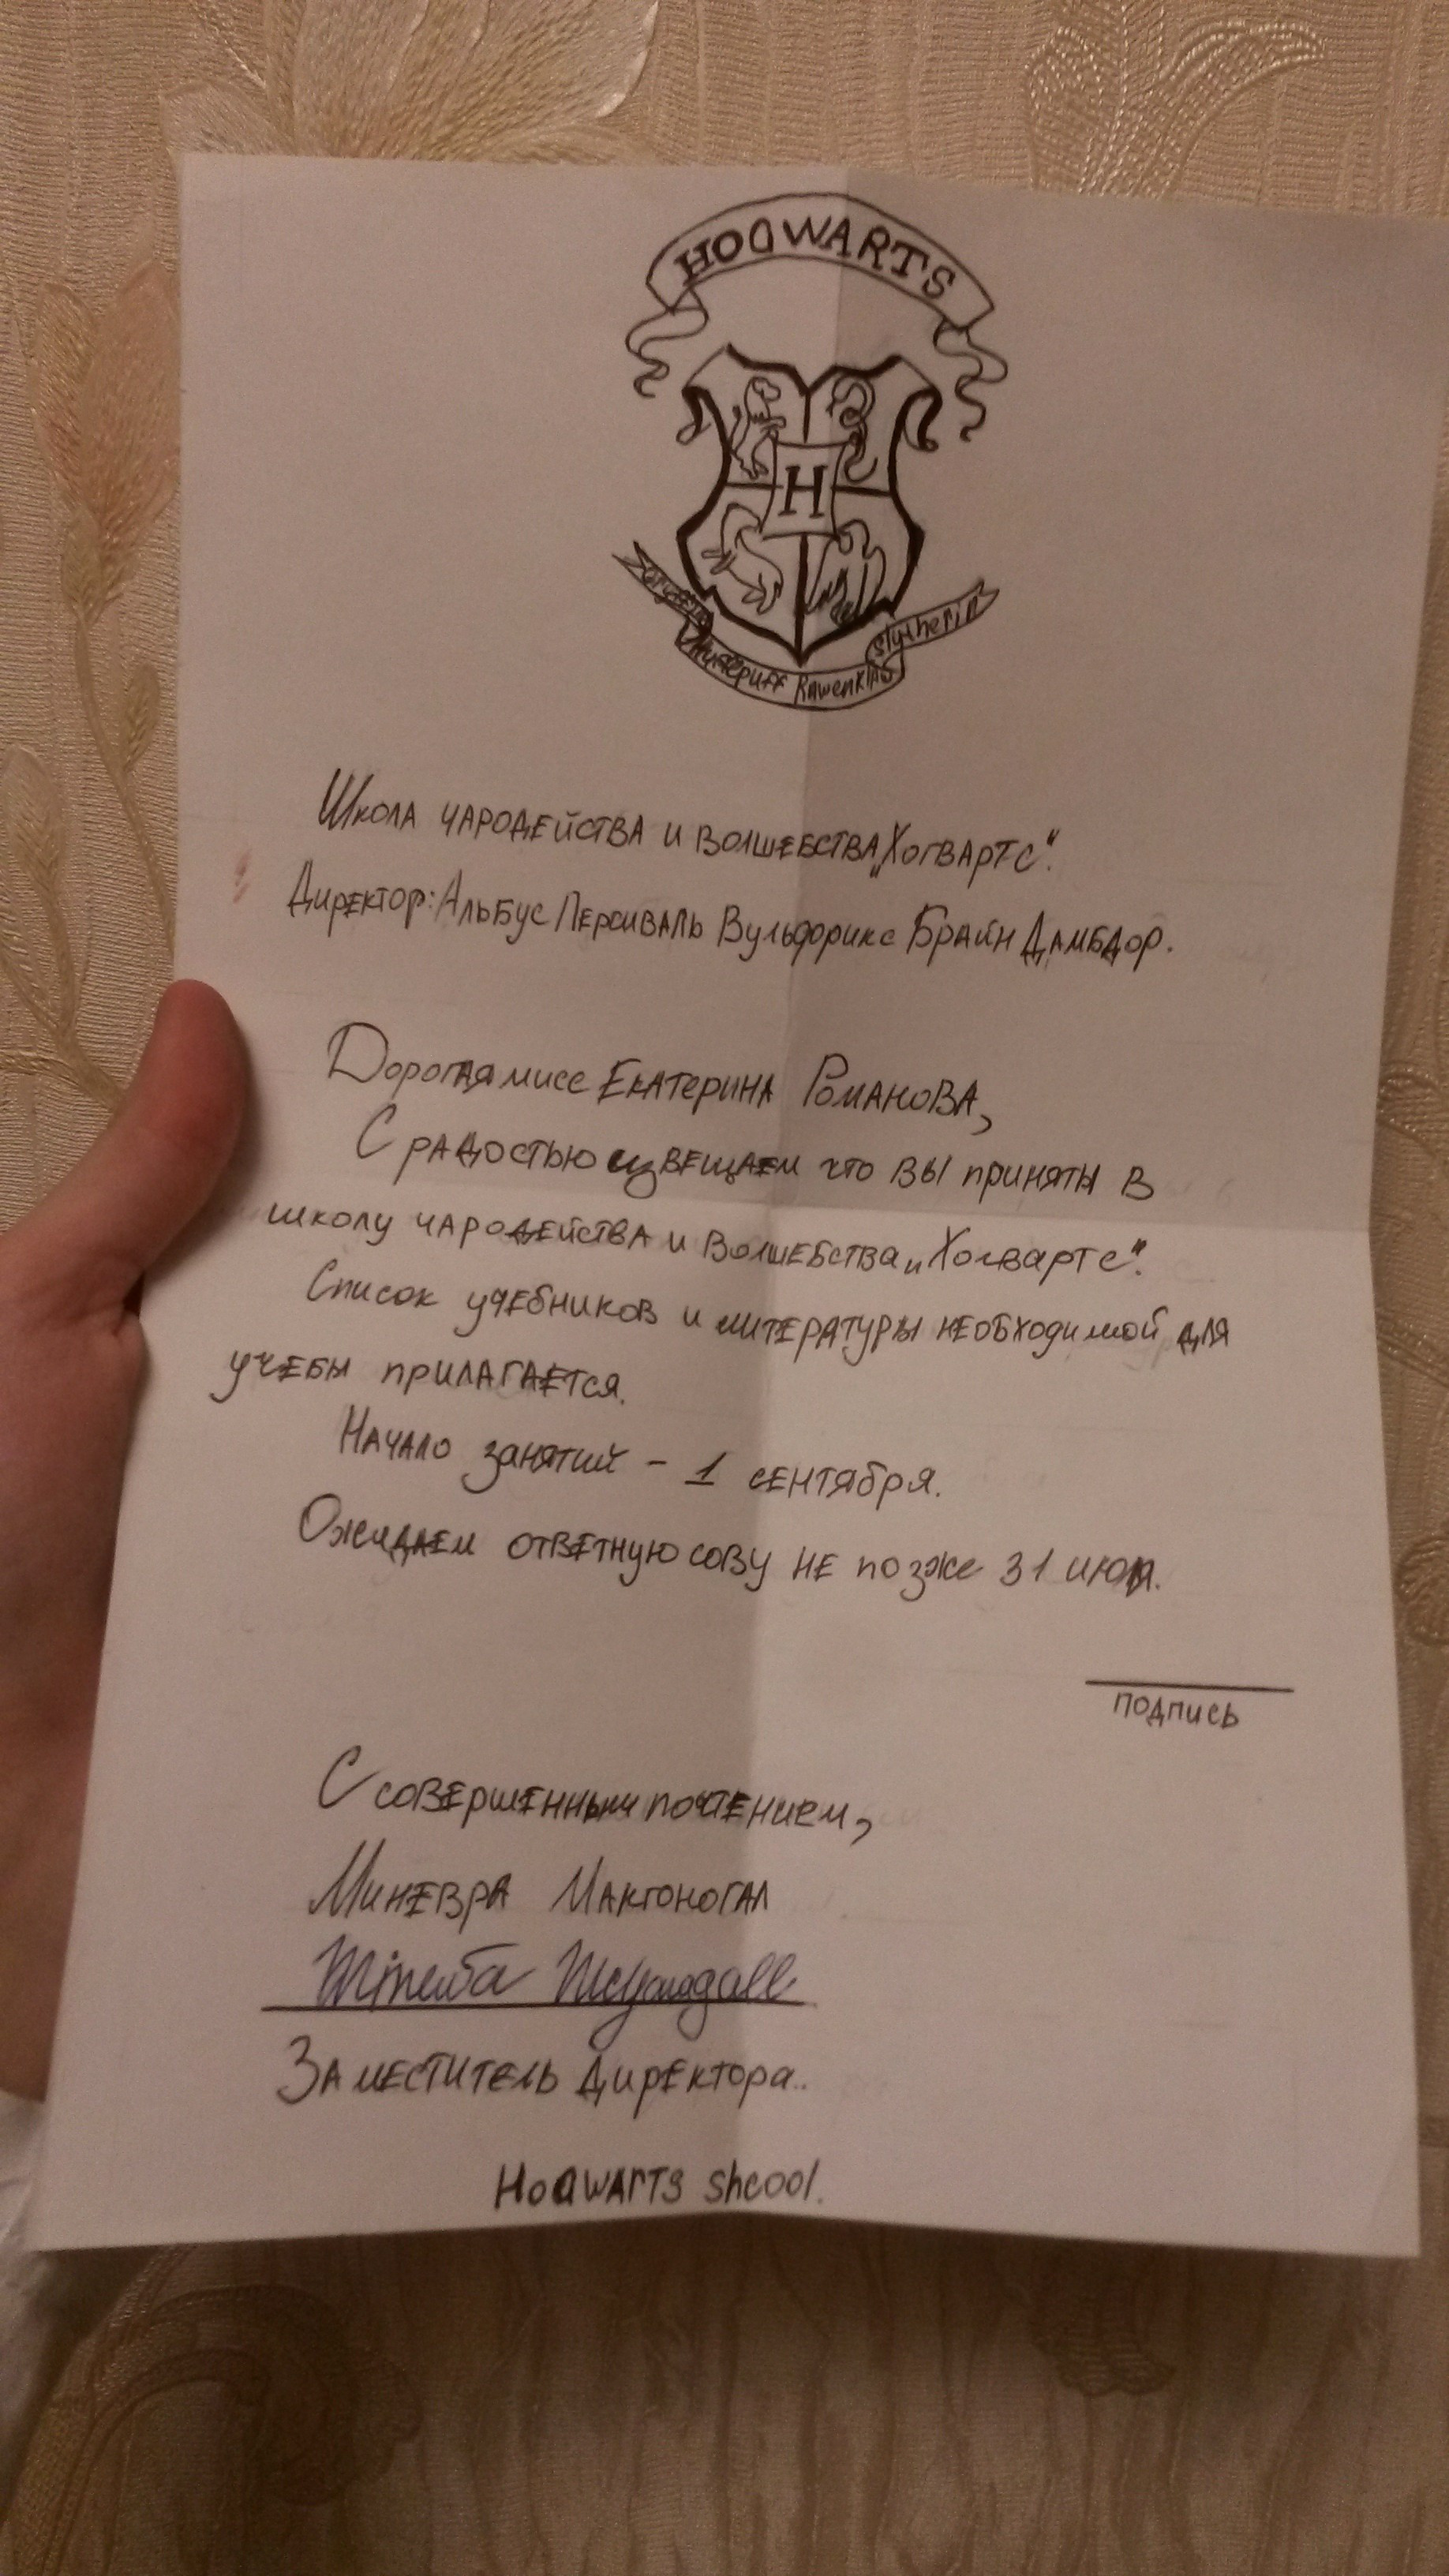 HOGWARTS
H
Hufflepuff Rawenklaw Slytherin
Школа чародейства и волшебства „Хогвартс".
Директор: Альбус Персиваль Вульфорикс Брайн Дамбдор.
Дорогая мисс Екатерина Романова,
С радостью извещаем что вы приняты в
школу чародейства и Волшебства „Хогвартс".
Список учебников и литературы необходимой для
учебы прилагается.
Начало занятий - 1 сентября.
Ожидаем ответную сову не позже 31 июля.
подпись
С совершенным почтением,
Миневра Макгоногал
Minerva McGonagall
Заместитель Директора..
Hogwarts shcool.